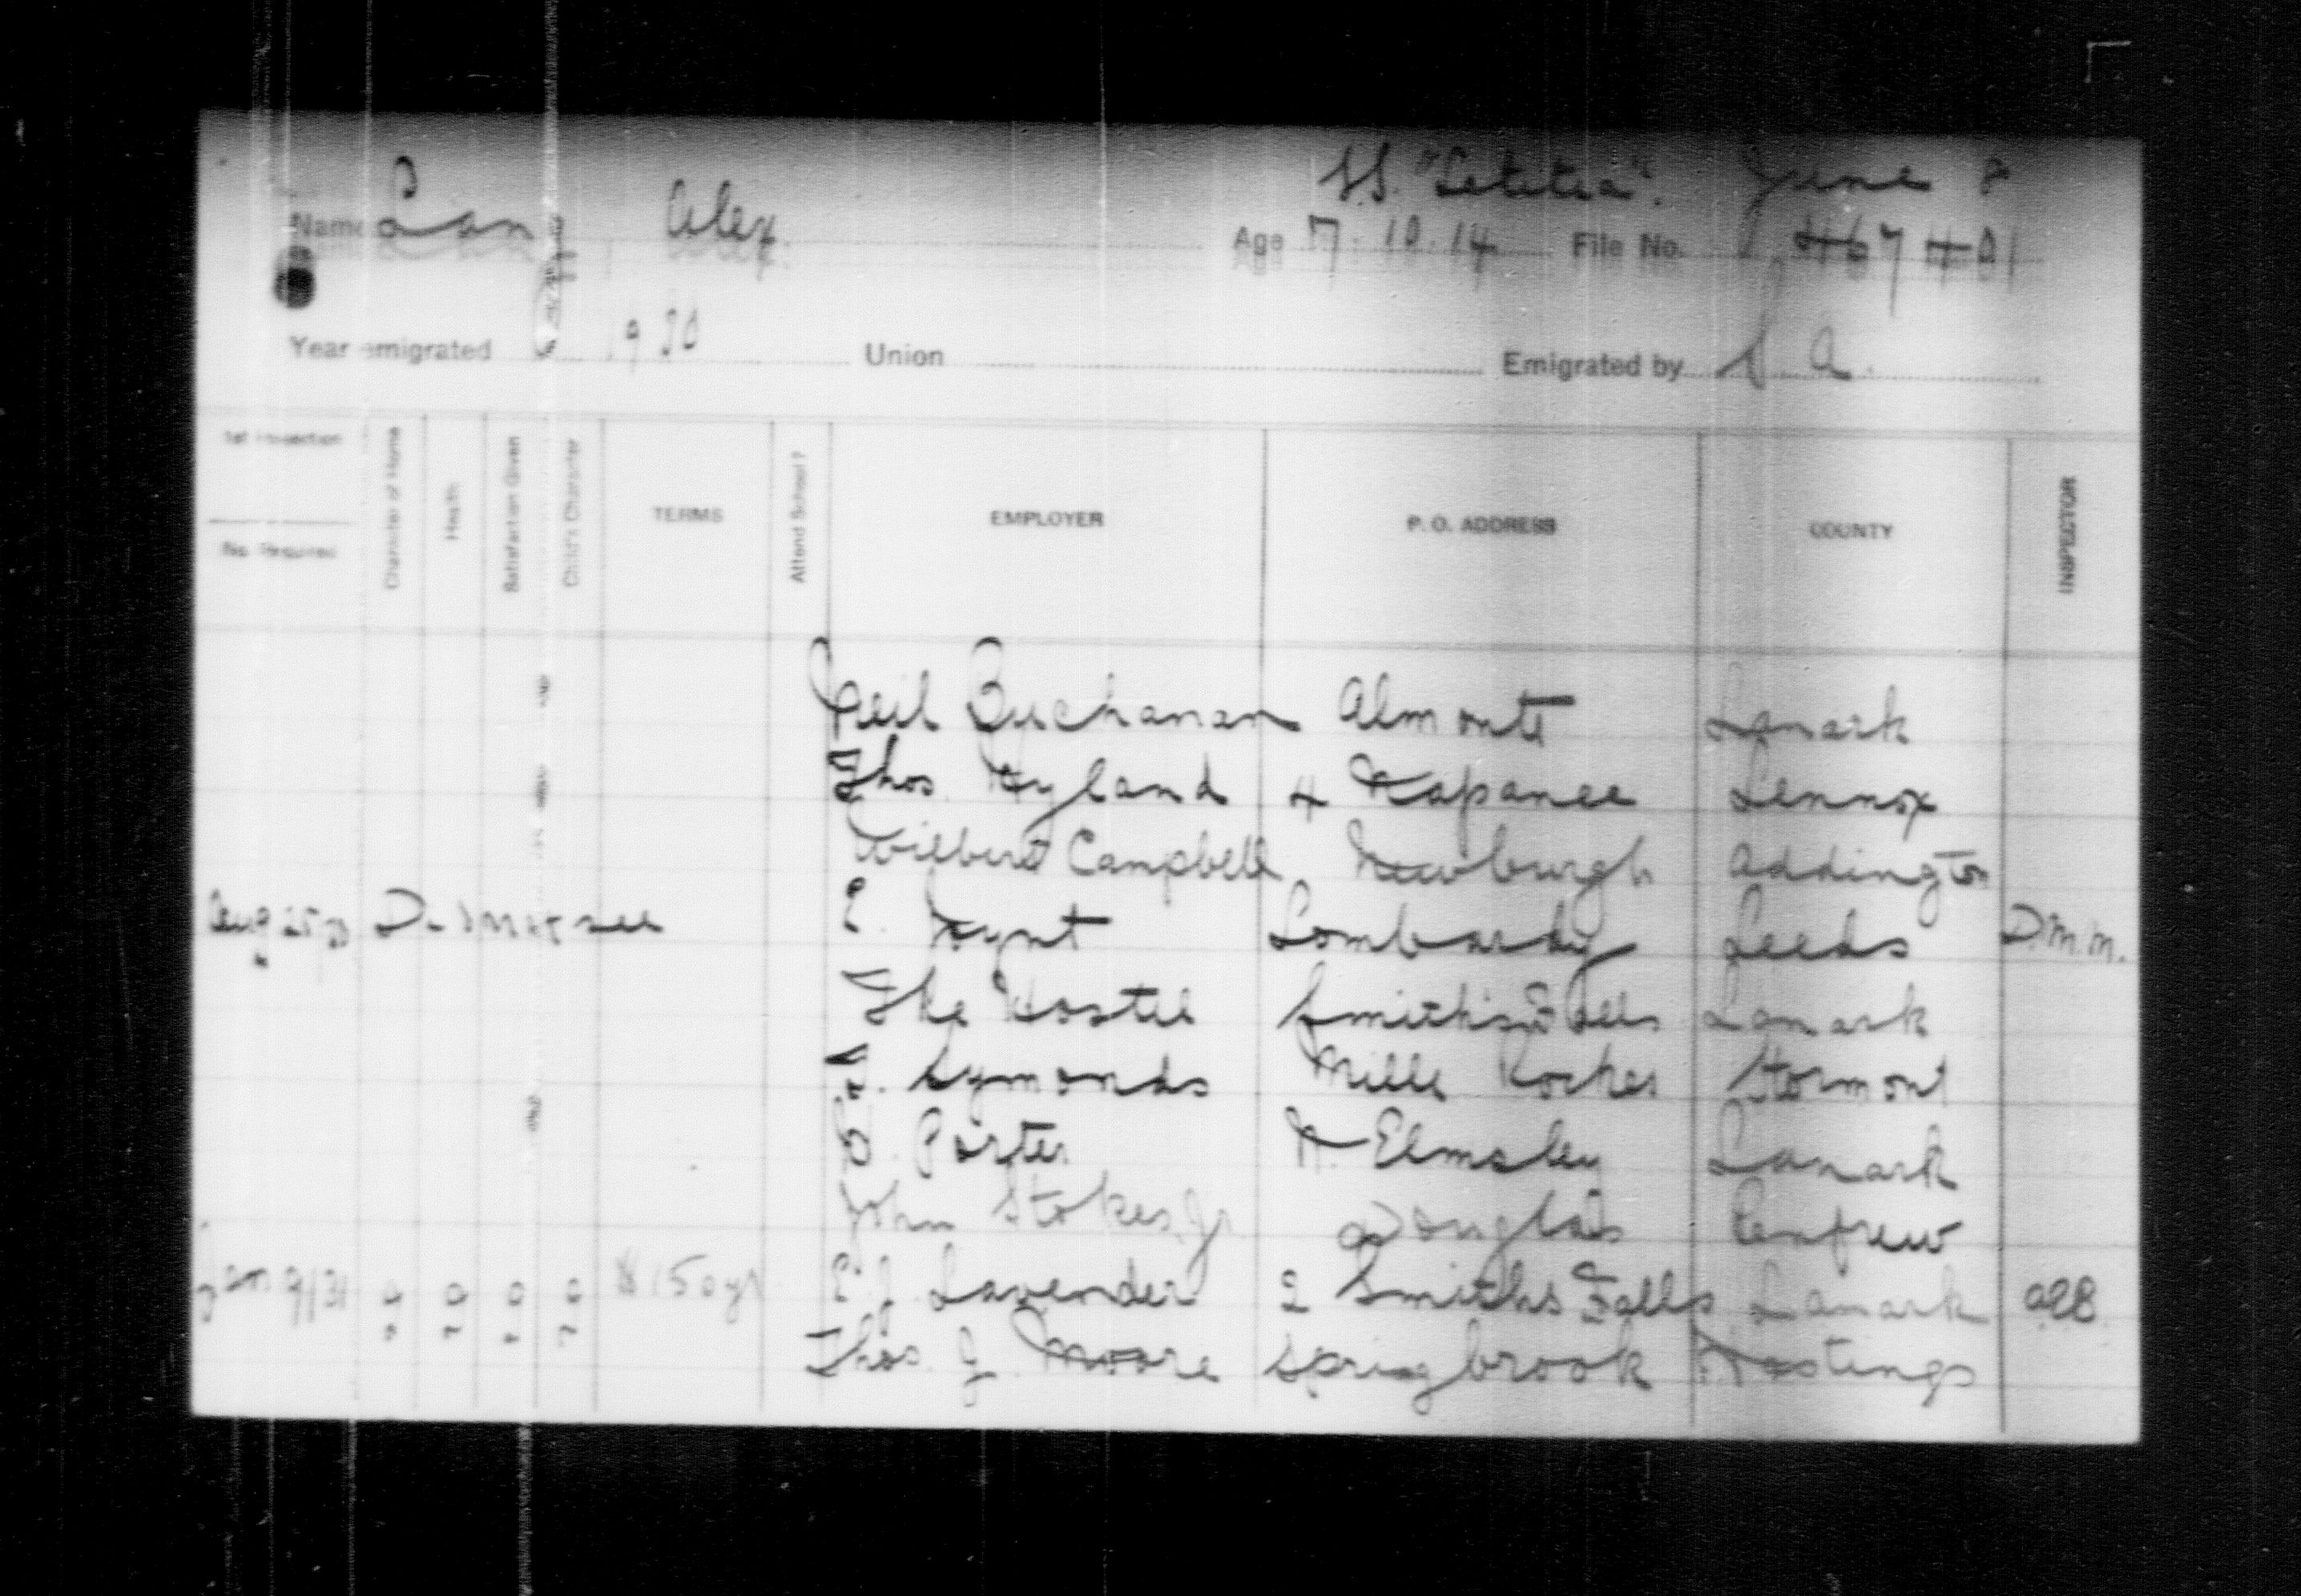 S.S. "Letitia". June 8
Name Lang Alex. Age 7.10.14 File No. 467401
Year emigrated 1930 Union Emigrated by S.A.
1st Inspection
No. Required
Character of Home
Health
Satisfaction Given
Child's Character
TERMS
Attend School?
EMPLOYER
P. O. ADDRESS
COUNTY
INSPECTOR
Neil Buchanan Almonte Lanark
Thos. Hyland 4 Napanee Lennox
Wilbert Campbell Newburgh Addington
Aug 25/30 Did not see E. Joynt Lombardy Leeds D.M.M.
The Hostel Smiths Falls Lanark
F. Symonds Mille Roches Stormont
Porter N. Elmsley Lanark
John Stokes, Jr Douglas Renfrew
Jan 9/31 $150 yr E.J. Lavender 2 Smiths Falls Lanark
Thos. J. Moore Springbrook Hastings